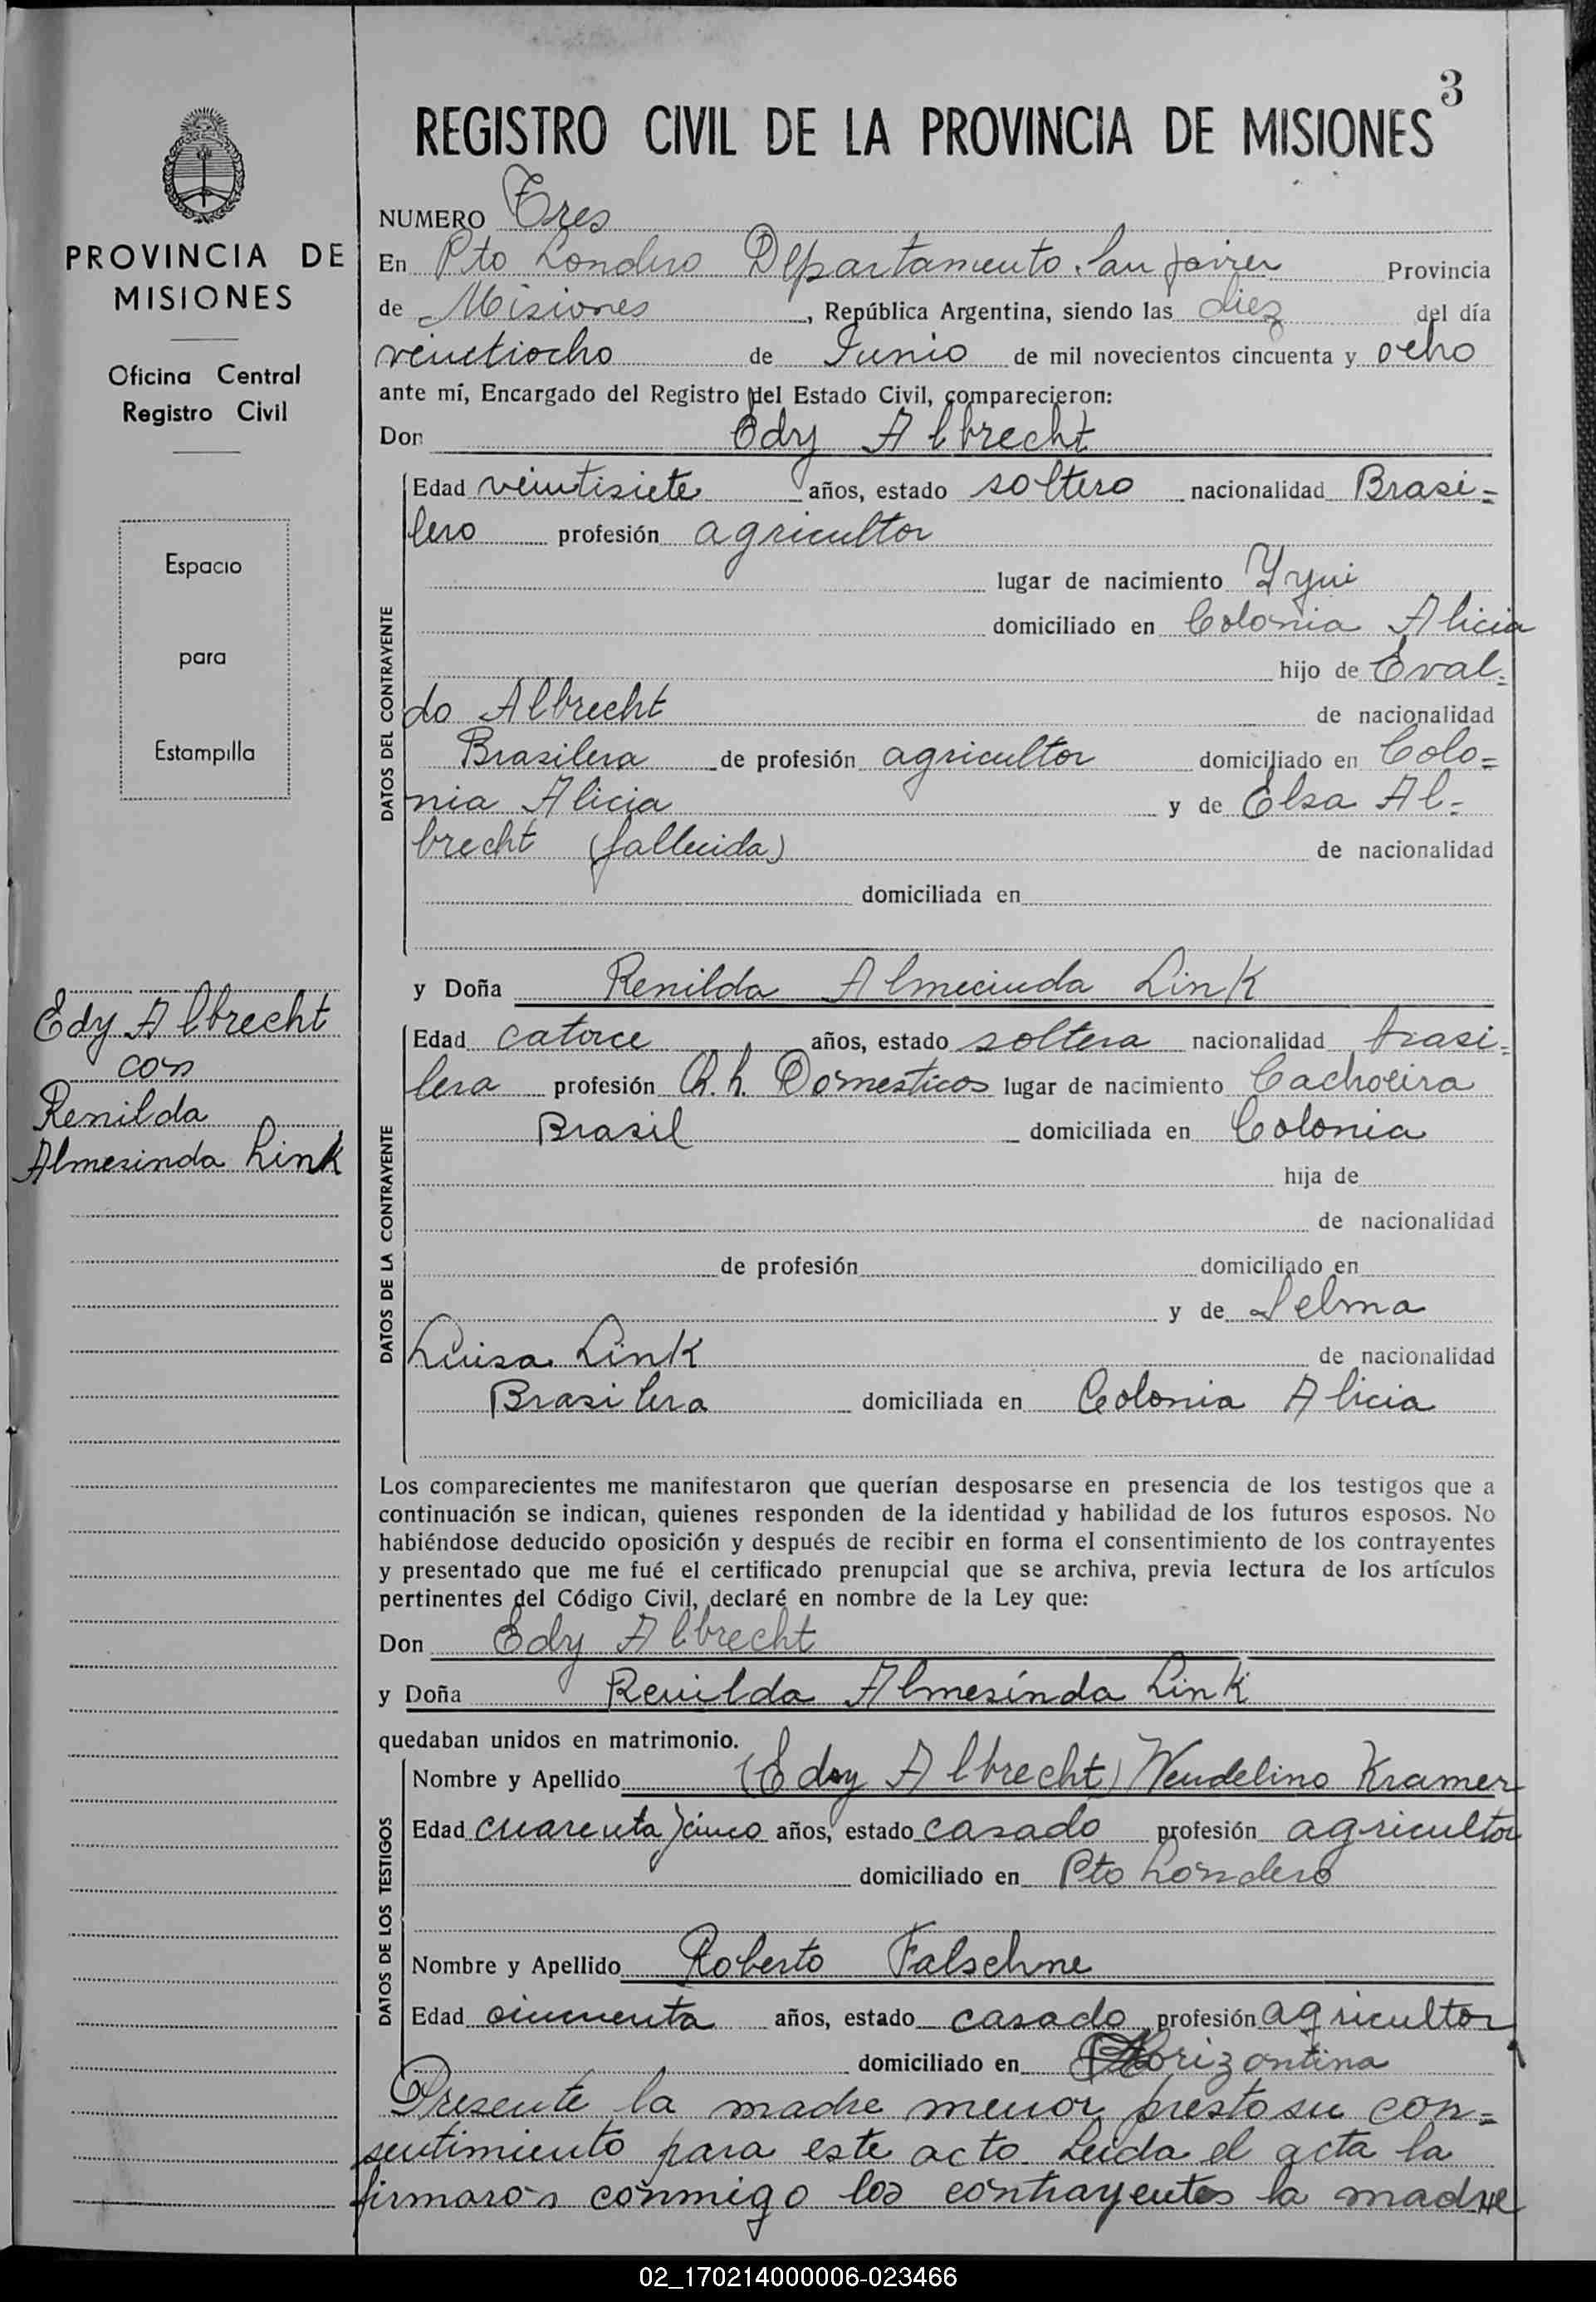 3
REGISTRO CIVIL DE LA PROVINCIA DE MISIONES
PROVINCIA DE
MISIONES
Oficina Central
Registro Civil
Espacio
para
Estampilla
Edy Albrecht
con
Renilda
Almesinda Link
NUMERO Tres
En Pto Londero Departamento San Javier Provincia
de Misiones, República Argentina, siendo las diez del día
veintiocho de Junio de mil novecientos cincuenta y ocho
ante mí, Encargado del Registro del Estado Civil, comparecieron:
Don Edy Albrecht
DATOS DEL CONTRAYENTE
Edad veintisiete años, estado soltero nacionalidad Brasi=
lero profesión agricultor
lugar de nacimiento Yyui
domiciliado en Colonia Alicia
hijo de Eval=
do Albrecht de nacionalidad
Brasilera de profesión agricultor domiciliado en Colo=
nia Alicia y de Elsa Al=
brecht (fallecida) de nacionalidad
domiciliada en
y Doña Renilda Almecinda Link
DATOS DE LA CONTRAYENTE
Edad catorce años, estado soltera nacionalidad brasi=
lera profesión Q. h. Domesticos lugar de nacimiento Cachoeira
Brasil domiciliada en Colonia
hija de
de nacionalidad
de profesión domiciliado en
y de Selma
Luisa Link de nacionalidad
Brasilera domiciliada en Colonia Alicia
Los comparecientes me manifestaron que querían desposarse en presencia de los testigos que a
continuación se indican, quienes responden de la identidad y habilidad de los futuros esposos. No
habiéndose deducido oposición y después de recibir en forma el consentimiento de los contrayentes
y presentado que me fué el certificado prenupcial que se archiva, previa lectura de los artículos
pertinentes del Código Civil, declaré en nombre de la Ley que:
Don Edy Albrecht
y Doña Renilda Almesinda Link
quedaban unidos en matrimonio.
DATOS DE LOS TESTIGOS
Nombre y Apellido (Edoy Albrecht) Wendelino Kramer
Edad cuarenta y cinco años, estado casado profesión agricultor
domiciliado en Pto Londero
Nombre y Apellido Roberto Falschne
Edad cincuenta años, estado casado profesión agricultor
domiciliado en Horizontina
Presente la madre menor presto su con=
sentimiento para este acto. Leida el acta la
firmaron conmigo los contrayentes la madre
02_170214000006-023466